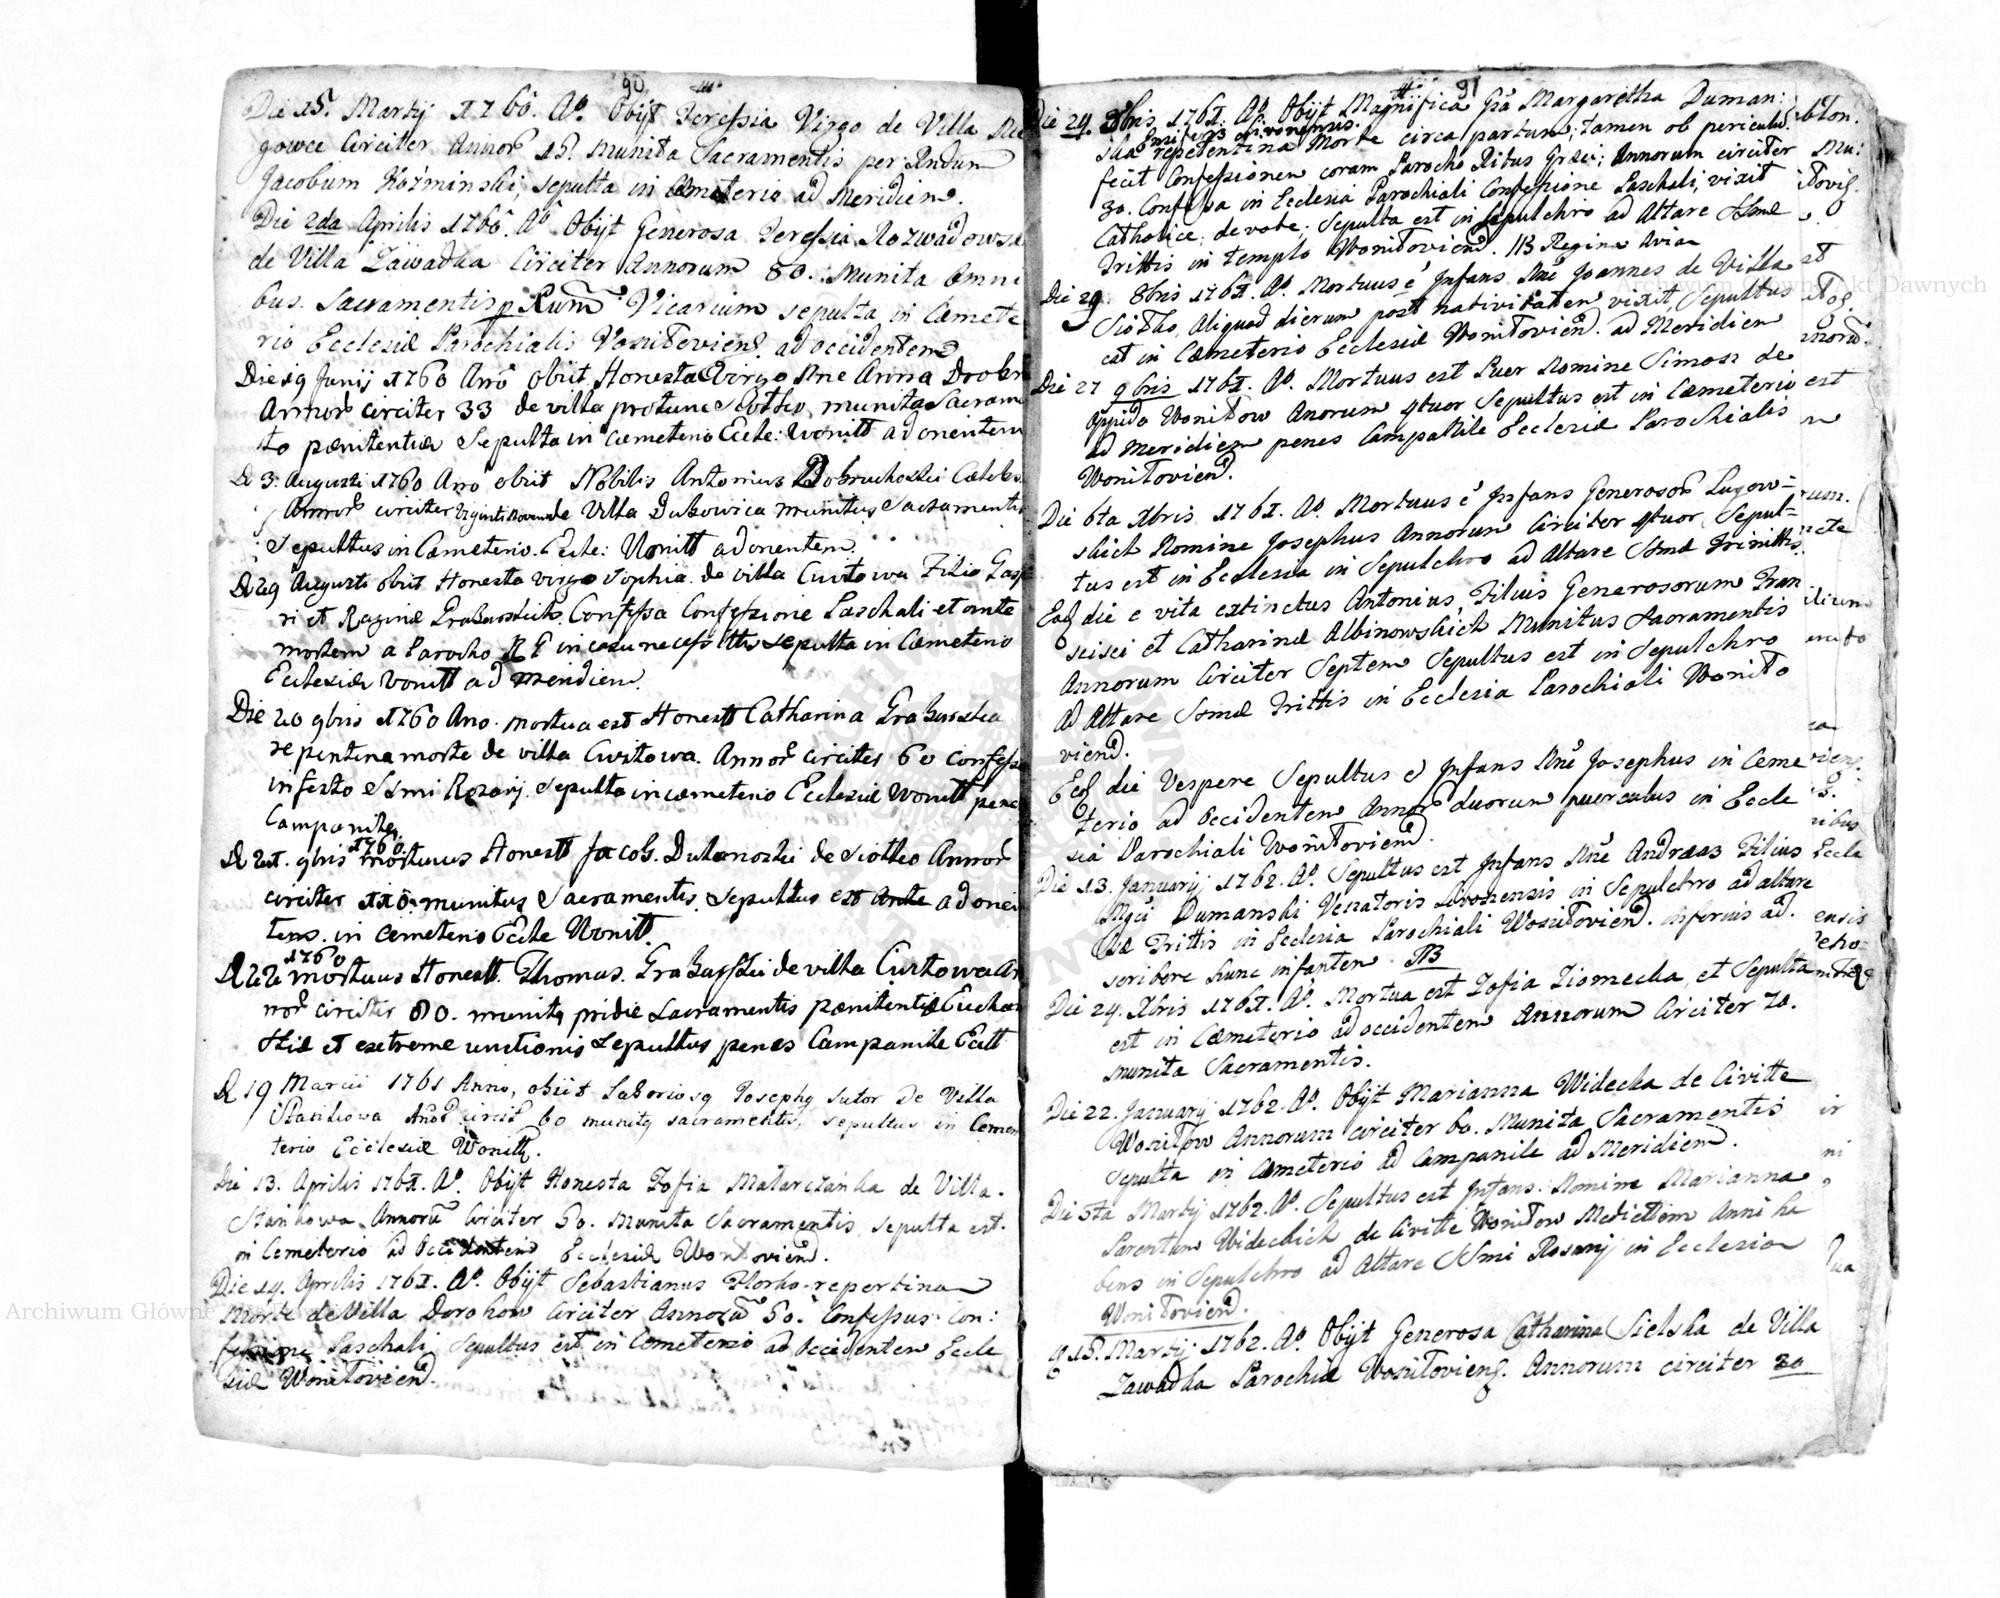 90
Die 15. Martij 1760. Ao. Obijt Teressia Virgo de Villa
gowce Circiter Annor 15. Munita Sacramentis per Rndum
Jacobum Koźminski, sepulta in Cemeterio ad Meridiem.
Die 2da Aprilis 1760. Ao Obijt Generosa Teressia Rozwadowska
de Villa Zawadka Circiter Annorum 80. Munita Omni
bus. Sacramentis p Rum Vicarium sepulta in Cæmete
rio Ecclesiæ Parochialis Vonitoviens. ad occidentem
Die 19 Junij 1760 Ano obiit Honesta Virgo Nne Anna
Annor circiter 33 de villa protunc Siotko, munita Sacram
to pænitentiæ Sepulta in cæmeterio Eccle: Wonitt ad orientem
D 3. Augusti 1760 Ano obiit Nobilis Antonius Dobruchoski Cælebs
Annor circiter Viginti Novem de Villa Dubowica munitus Sacramentis
Sepultus in Cæmeterio. Eccle: Wonitt ad orientem.
D 29 Augusti obiit Honesta virgo Sophia de villa Curtowa Filia Gasp
ri et Reginæ Grabarskich Confessa Confessione Paschali et ante
mortem a Parocho R G in casu necessittis sepulta in Cæmeterio
Ecclesiæ Vonitt ad meridiem.
Die 20 9bris 1760 Ano. mortua est Honestt Catharina Grabarska
repentina morte de villa Curtowa. Annor circiter 60 confessa
in festo SSmi Rozarij. Sepulta in cæmeterio Ecclesiæ Wonitt pene
Campanile.
D 21. 9bris 1760. mortuus Honestt Jacob. Dukanoski de Siotko Annor
circiter munitus Sacramentis. Sepultus est ante ad orien
tem. in cemeterio Eccle Wonitt.
D 22 1760 mortuus Honestt. Thomas. Grabarski de villa Curtowa An
nor circiter 80. munitq pridie Sacramentis pænitentiæ Euchari
stiæ et extreme unctionis Sepultus penes Campanile Eccll
D 19 Marcii 1761 Anno, obiit Laboriosq Josephq sutor De Villa
Stankowa Anor circit 60 munitq sacramentis, sepultus in Cemen
terio Ecclesiæ Wonitt.
Die 13. Aprilis 1761. Ao. Obijt Honesta Zofia Malarczanka de Villa.
Stankowa Annoru Circiter 50. Munita Sacramentis, sepulta est.
in Cemeterio ad Occidentem Ecclesiæ Wonitoviens.
Die 14. Aprilis 1761. Ao. Obijt Sebastianus Horko repentina
Morte de Villa Dorohow Circiter Annoru 50. Confessus Con:
fessione Paschali, Sepultus est in Cemeterio ad Occidentem Eccle
siæ Wonitoviens.
91
Die 24. 8bris 1761. Ao. Obijt Magnifica Gsa Margaretha Duman:
ska Ensifera Livonensis. repetentina Morte circa partum; tamen ob periculu
fecit Confessionem coram Parocho Ritus Græci; Annorum circiter
30. Confessa in Ecclesia Parochiali Confessione Paschali, vixit
Catholice, devote; Sepulta est in sepulchro ad Altare SSmæ
Trittis in templo Wonitoviens. NB Regina Avia
Die 29. 8bris 1761. Ao. Mortuus e Infans Nne Joannes de Villa
Siotko, Aliquod dierum post nativitatem vixit, Sepultus
est in Cæmeterio Ecclesiæ Wonitoviens. ad Meridiem
Die 27 9bris 1761. Ao. Mortuus est Puer Nomine Simon de
Oppido Wonitow Anorum 4tuor Sepultus est in Cæmeterio
ad Meridiem penes Campanile Ecclesiæ Parochialis
Wonitoviens.
Die 6ta Xbris 1761. Ao. Mortuus e Infans Generosor Lugow=
skich Nomine Josephus Annorum Circiter 4tuor Sepul=
tus est in Ecclesia in Sepulchro ad Altare SSmæ Trinittis.
Eod die e vita extinctus Antonius, Filius Generosorum Fran
scisci et Catharinæ Albinowskich Munitus Sacramentis
Annorum Circiter Septem Sepultus est in Sepulchro
ad Altare SSmæ Trittis in Ecclesia Parochiali Wonito
viens.
Eod die Vespere Sepultus e Infans Nne Josephus in Ceme
terio ad Occidentem Annor duorum puerculus in Eccle
sia Parochiali Wonitoviens.
Die 13. Januarij 1762. Ao. Sepultus est Infans Nne Andreas Filius
Mgci Dumanski Venatoris Livonensis in Sepulchro ad altare
SSæ Trittis in Ecclesia Parochiali Wonitoviens. inferius ad.
scribere hunc infantem. NB
Die 24. Xbris 1761. Ao. Mortua est Zofia Ziomecka, et Sepulta
est in Cæmeterio ad occidentem Annorum Circiter 70.
munita Sacramentis.
Die 22. Januarij 1762. Ao. Obijt Marianna Widecka de Civitte
Wonitow Annorum circiter 60. Munita Sacramentis
sepulta in Cæmeterio ad Campanile ad Meridiem.
Die 5ta Martij 1762. Ao. Sepultus est Infans. Nomine Marianna
Parentum Wideckich de Civitte Wonitow Medietem Anni ha
bens in Sepulchro ad Altare SSmi Rosarij in Ecclesia
Wonitoviens.
D 15. Martij 1762. Ao. Obijt Generosa Catharina Sielska de Villa
Zawadka Parochiæ Wonitoviens. Annorum circiter 30
Archiwum Główne Akt Dawnych
Archiwum Główne Akt Dawnych